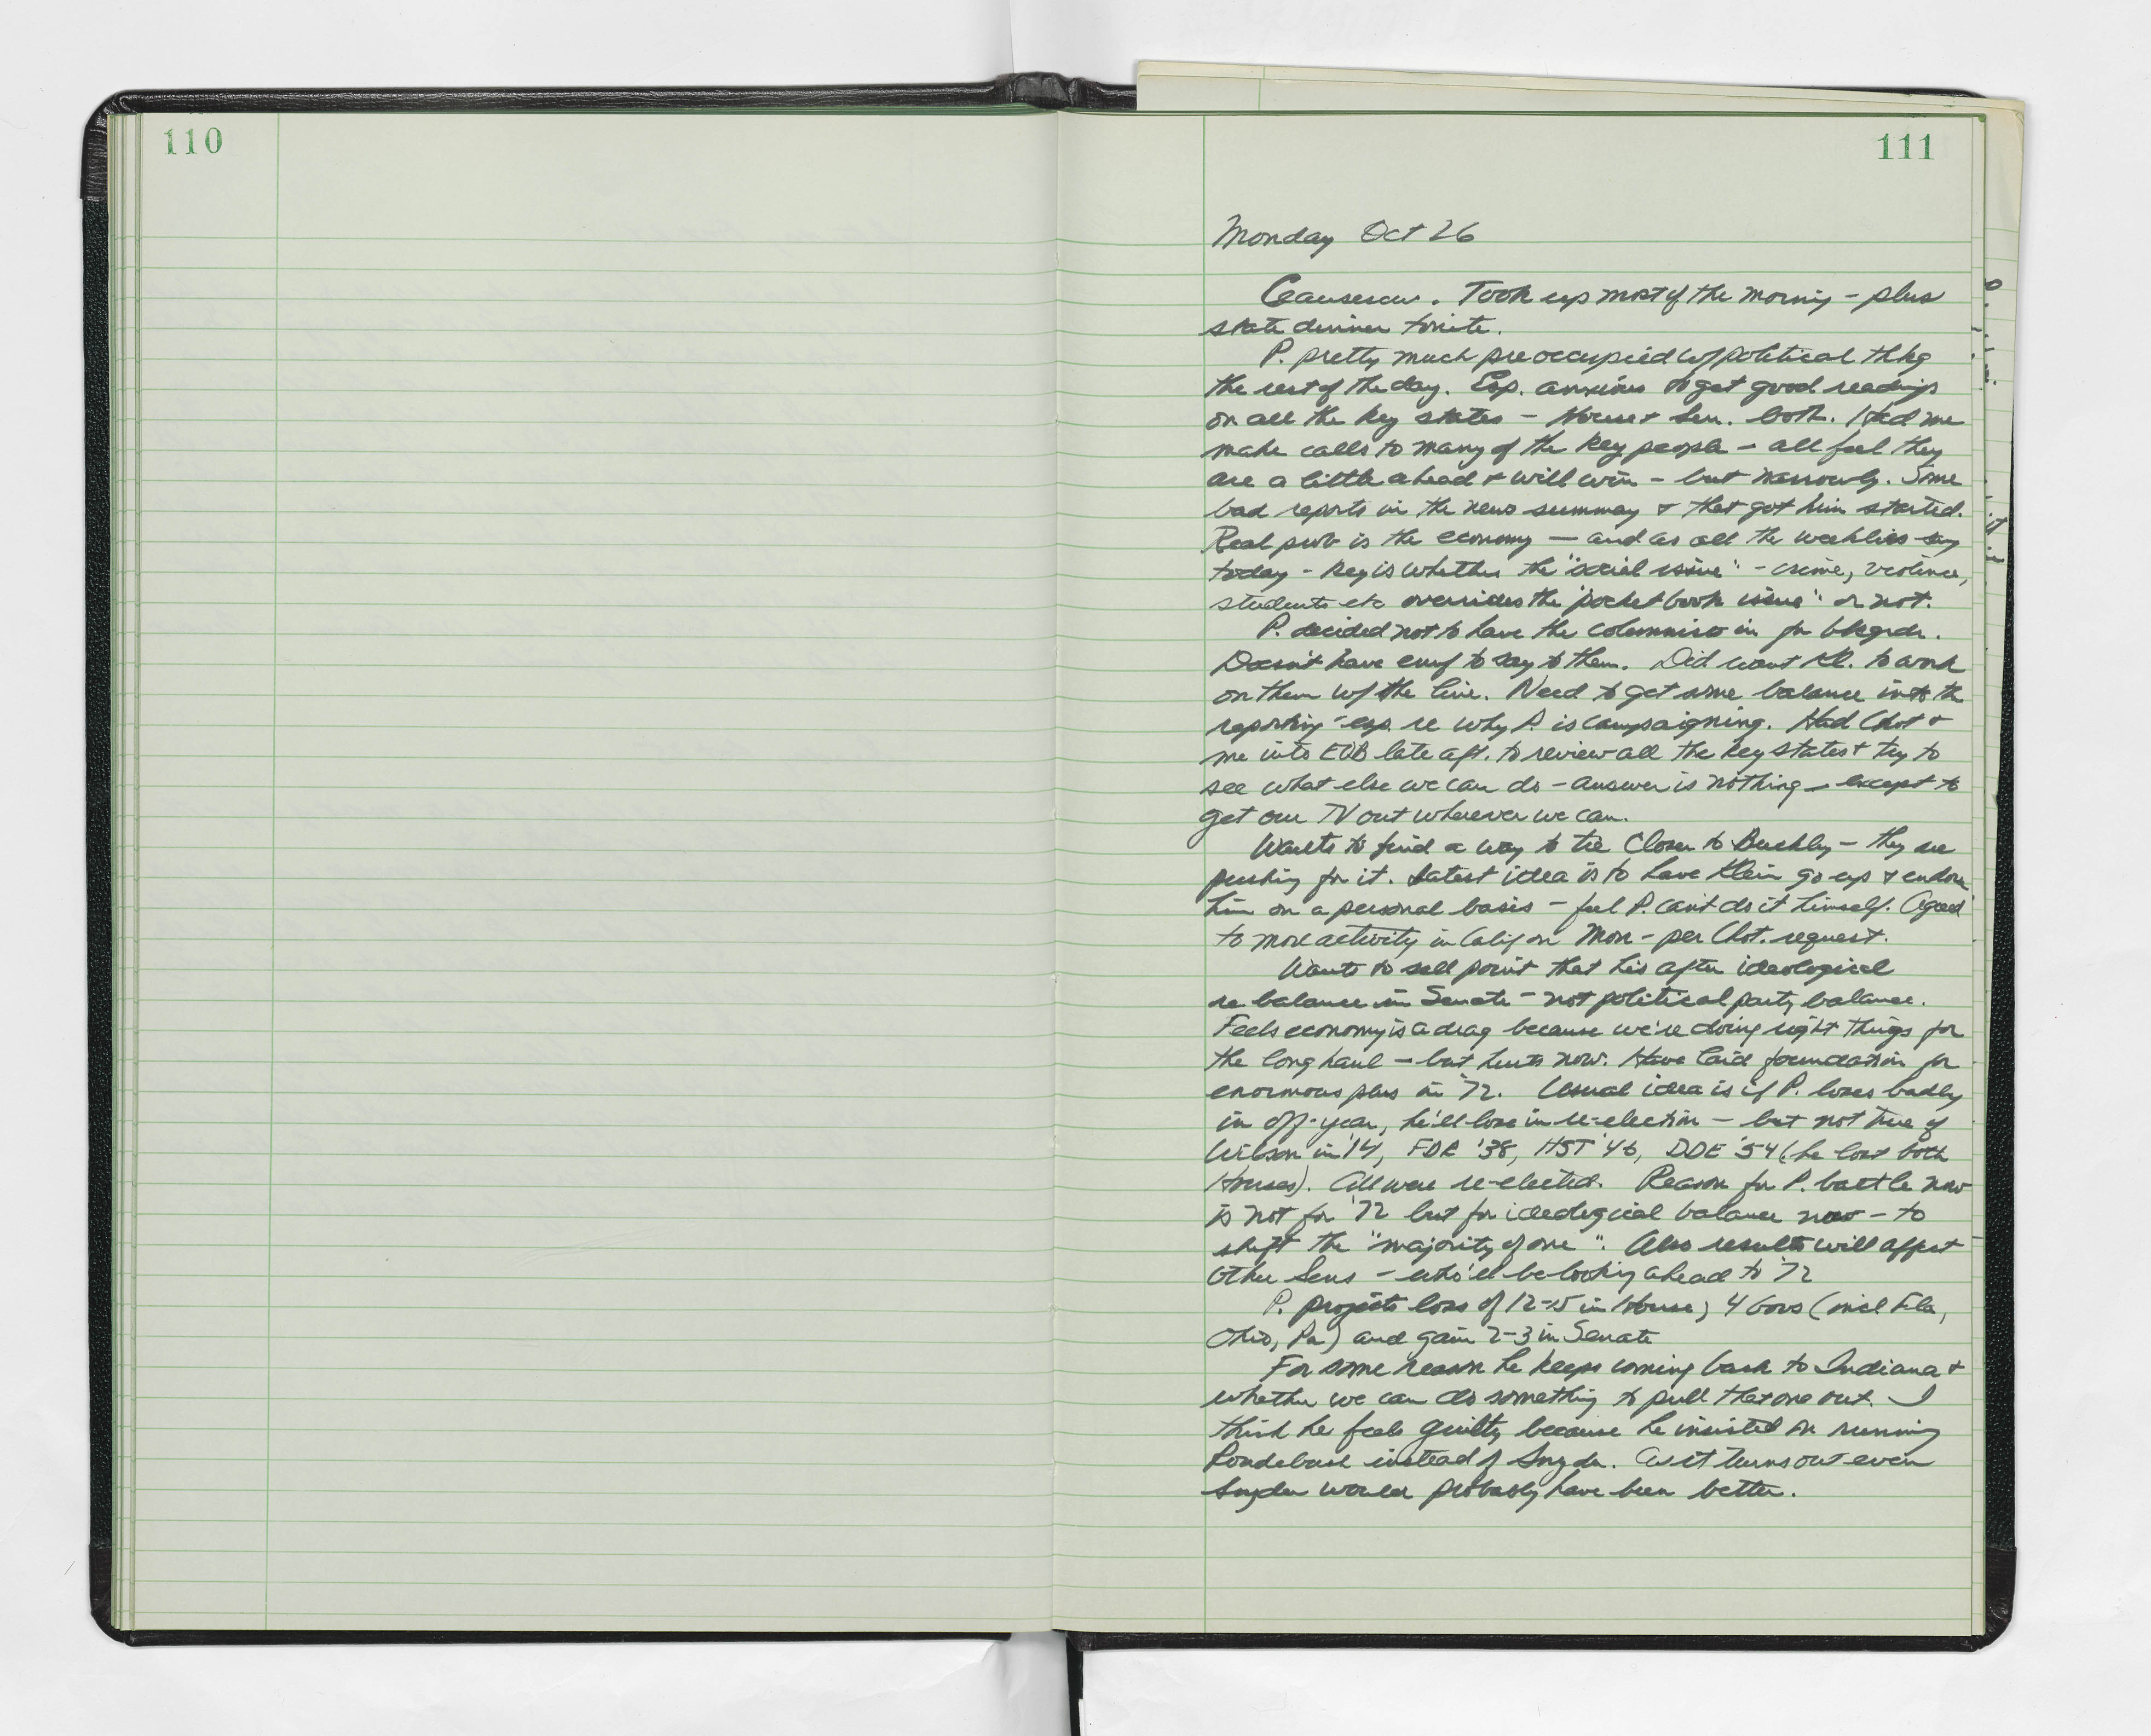 110
111
Monday Oct 26
Ceausescu. Took up most of the morning - plus
state dinner tonite.
P. pretty much preoccupied w/ political thkg
the rest of the day. Esp. anxious to get good readings
on all the key states - House + Sen. both. Had me
make calls to many of the key people - all feel they
are a little ahead + will win - but narrowly. Some
bad reports in the news summary + that got him started.
Real prob is the economy - and as all the weeklies say
today - key is whether the "social issue" - crime, violence,
students etc overrides the "pocket book issue" or not.
P. decided not to have the columnists in for bkgrdr.
Doesn't have enuf to say to them. Did want Kl. to work
on them w/ the line. Need to get some balance into the
reporting - esp. re why P. is campaigning. Had Chot +
me into EOB late aft. to review all the key states + try to
see what else we can do - answer is nothing - except to
get our TV out wherever we can.
Wants to find a way to tie closer to Buckley - they are
pushing for it. Latest idea is to have Klein go up + endorse
him on a personal basis - feel P. can't do it himself. Agreed
to more activity in Calif on Mon - per Chot. request.
Wants to sell point that his after ideological
re balance in Senate - not political party balance.
Feels economy is a drag because we're doing right things for
the long haul - but hurts now. Have laid foundation for
enormous plus in '72. Usual idea is if P. loses badly
in off-year, he'll lose in re-election - but not true of
Wilson in '14, FDR '38, HST '46, DDE '54 (he lost both
Houses). All were re-elected. Reason for P. battle now
is not for '72 but for ideological balance now - to
shift the "majority of one". Also results will affect
other Sens - who'll be looking ahead to '72
P. projects loss of 12-15 in House, 4 Govs (incl Fla,
Ohio, Pa) and gain 2-3 in Senate
For some reason he keeps coming back to Indiana +
whether we can do something to pull that one out. I
think he feels guilty because he insisted on running
Roudebush instead of Snyder. As it turns out even
Snyder would probably have been better.